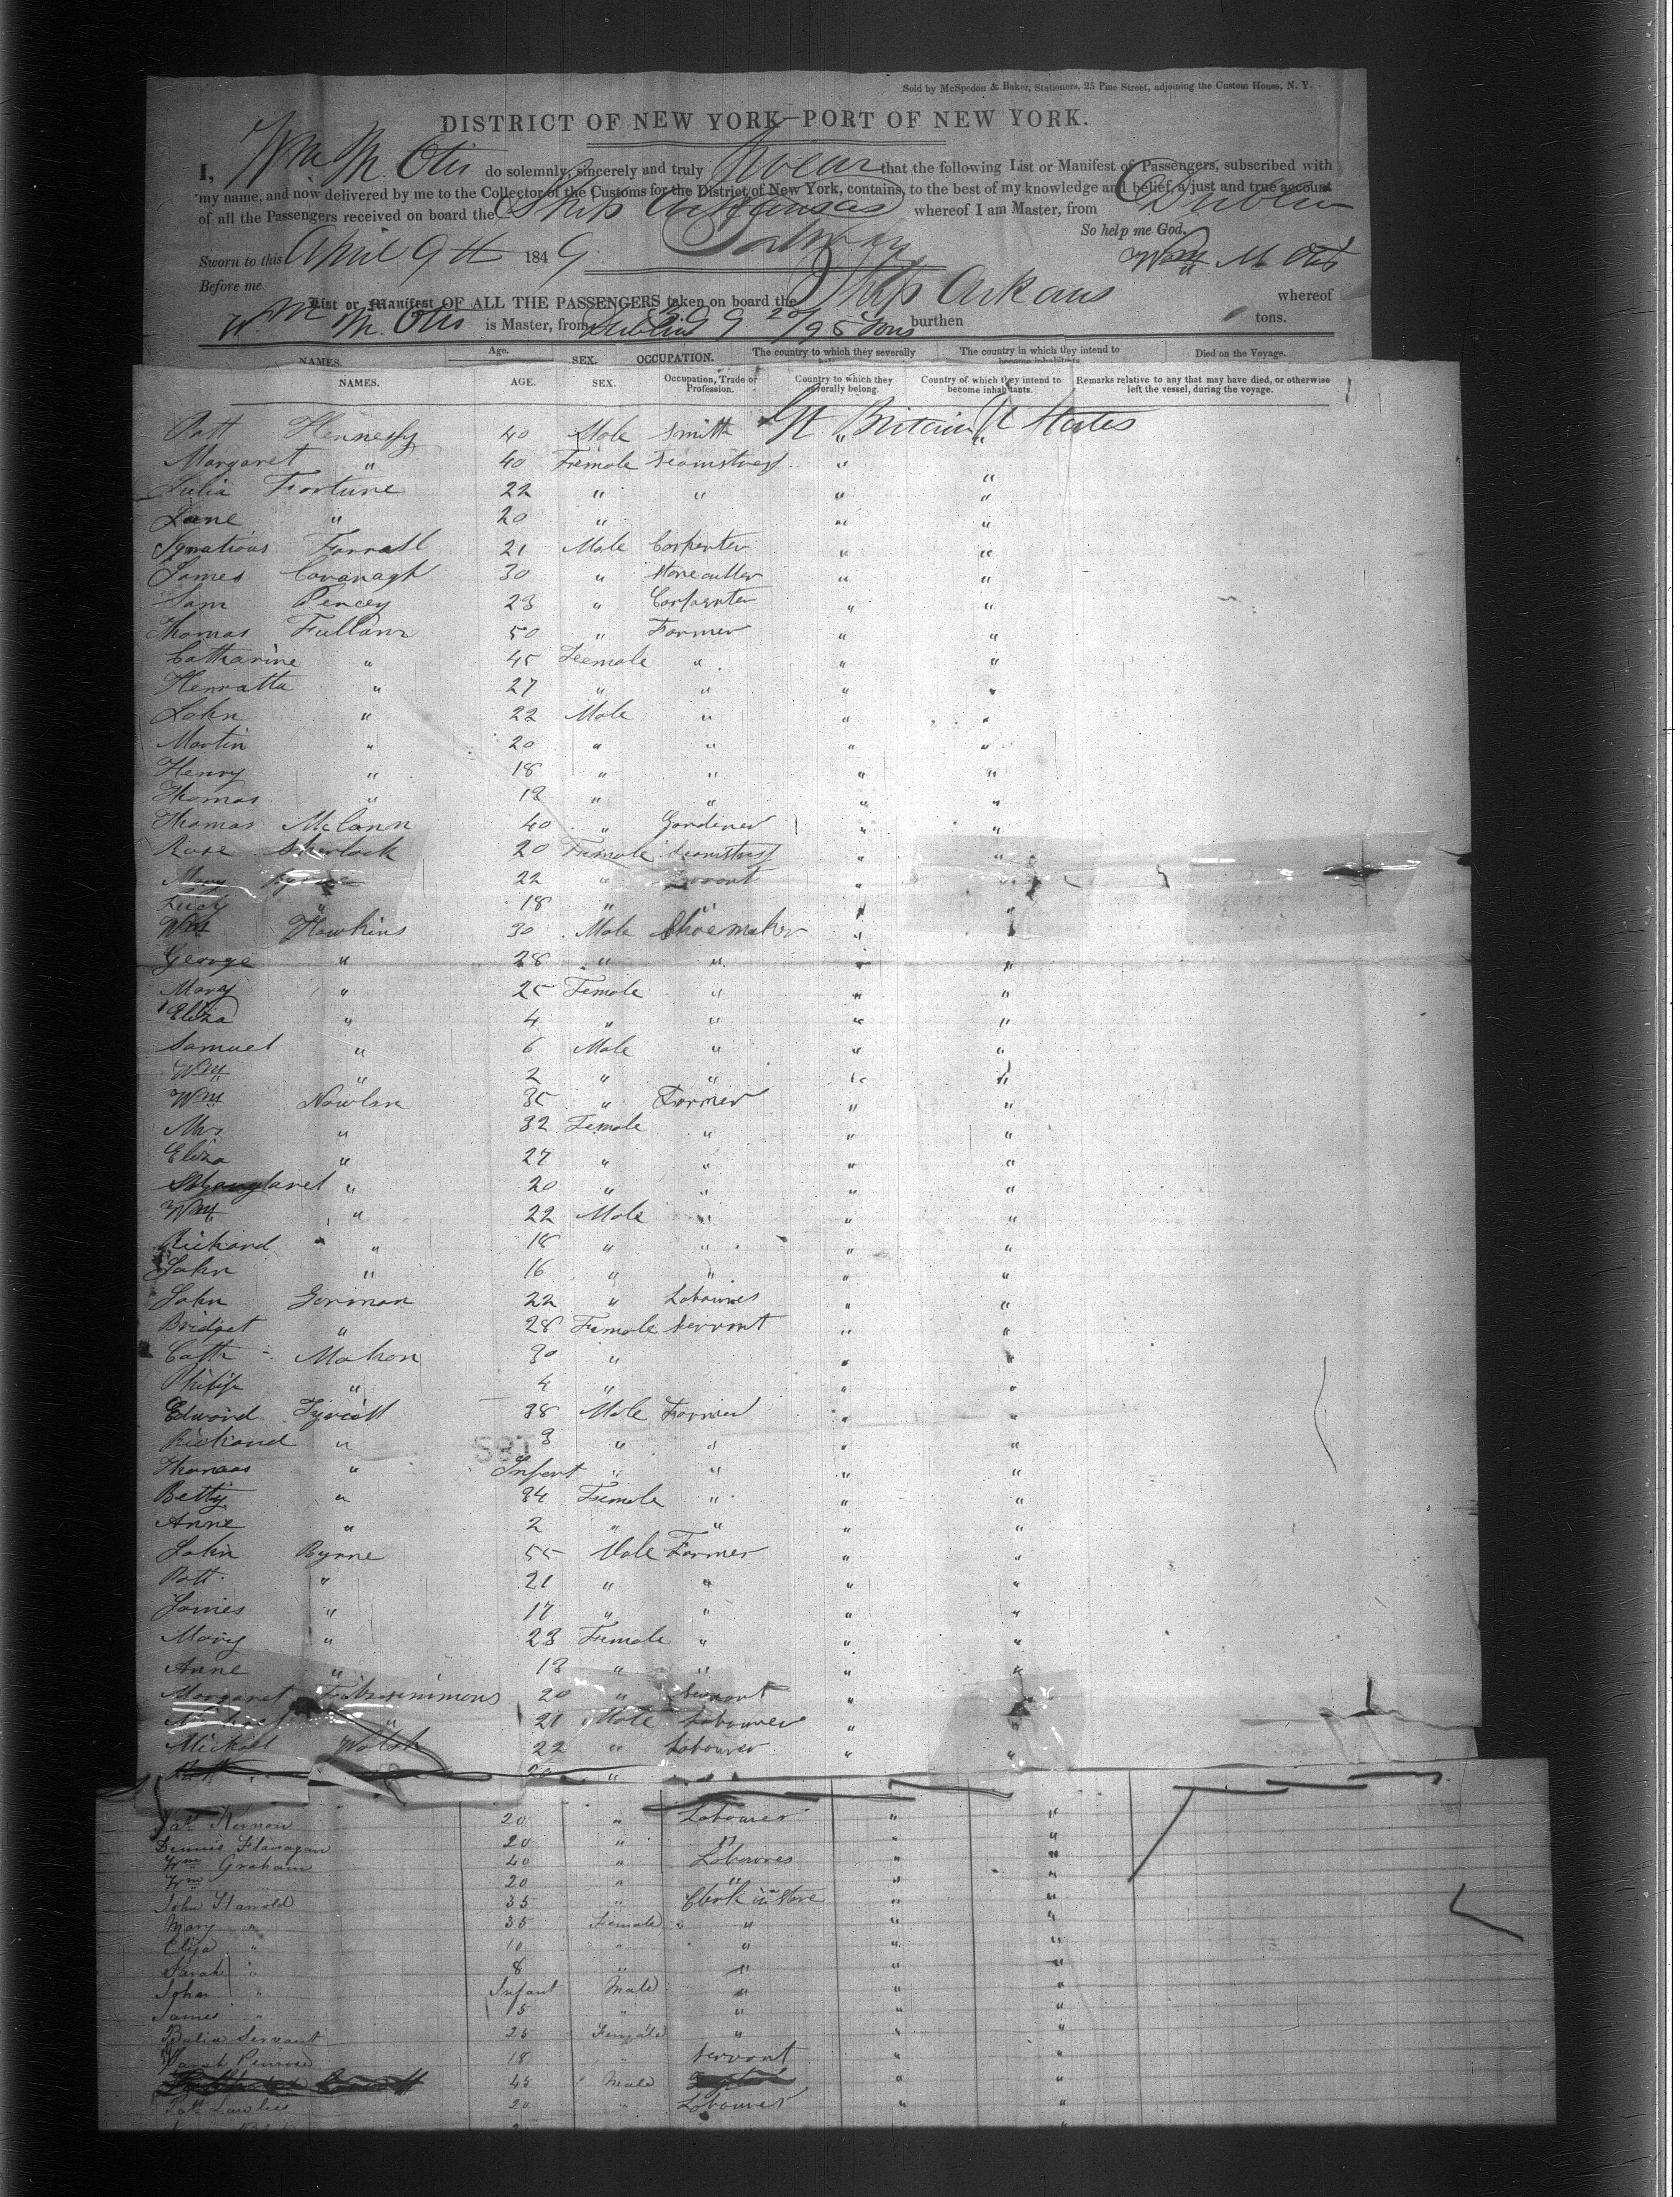 Sold by McSpedon & Baker, Stationers, 25 Pine Street, adjoining the Custom House, N. Y.
DISTRICT OF NEW YORK—PORT OF NEW YORK.
I, Wm M. Otis do solemnly, sincerely and truly Swear that the following List or Manifest of Passengers, subscribed with
my name, and now delivered by me to the Collector of the Customs for the District of New York, contains, to the best of my knowledge and belief, a just and true account
of all the Passengers received on board the Ship Arkansas whereof I am Master, from Dublin
So help me God.
Sworn to this April 9th 1849 Wm M Otis
Before me
List or Manifest OF ALL THE PASSENGERS taken on board the Ship Arkans whereof
Wm M. Otis is Master, from Dublin burthen tons.
NAMES. Age. SEX. OCCUPATION. The country to which they severally The country in which they intend to become inhabitants Died on the Voyage.
NAMES. AGE. SEX. Occupation, Trade or Profession. Country to which they severally belong. Country of which they intend to become inhabitants. Remarks relative to any that may have died, or otherwise left the vessel, during the voyage.
Patt Hennessy 40 Male Smith Gt Britain U States
Margaret " 40 Female Seamstress " "
Julia Fortune 22 " " " "
Jane " 20 " " "
Ignatious Farrall 21 Male Carpenter " "
James Cavanagh 30 " Stone cutter " "
Sam Pencey 23 " Carpenter " "
Thomas Fullam 50 " Farmer " "
Catharine " 45 Feemale " " "
Henratta " 27 " " " "
John " 22 Male " " "
Martin " 20 " " " "
Henry " 18 " " " "
Thomas " 18 " " " "
Thomas McCann 40 " Gardener " "
Rose Sherlock 20 Female Seamstress " "
Mary 22 " Servant "
Lucy " 18 " " " "
Wm Hawkins 30 Male Shoemaker " "
George " 28 " " " "
Mary " 25 Female " " "
Eliza " 4 " " " "
Samuel " 6 Male " " "
Wm " 2 " " " "
Wm Nowlan 35 " Farmer " "
Mrs " 32 Female " " "
Eliza " 27 " " " "
Margaret " 20 " " " "
Wm " 22 Male " " "
Richard " 18 " " " "
John " 16 " " " "
John Gorman 22 " Labourer " "
Bridget " 28 Female Servant " "
Cath Mahon 30 " " "
Philip " 4 " " "
Edward 38 Male Farmer " "
Richard " 3 " " " "
Thomas " Infant " " " "
Betty " 34 Female " " "
Anne " 2 " " " "
John Byrne 55 Male Farmer " "
Patt " 21 " " " "
James " 17 " " " "
Mary " 23 Female " " "
Anne " 18 " " " "
Margaret Fitzsimmons 20 " Servant "
" 21 Male Labourer " "
Michael Walsh 22 " Labourer " "
20 "
Patk Kernon 20 " Labourer " "
Dennis Flanagan 20 " " " "
Wm Graham 40 " Labourer " "
Wm " 20 " " " "
John Harrold 35 " Clerk in Store " "
Mary " 35 Female " " "
Eliza " 10 " " " "
Sarah " 8 " " " "
John " Infant Male " " "
James " 15 " " " "
Servant 25 Female " " "
Sarah Penrose 18 " Servant " "
45 Male " "
Patk Lawless 20 " Labourer " "